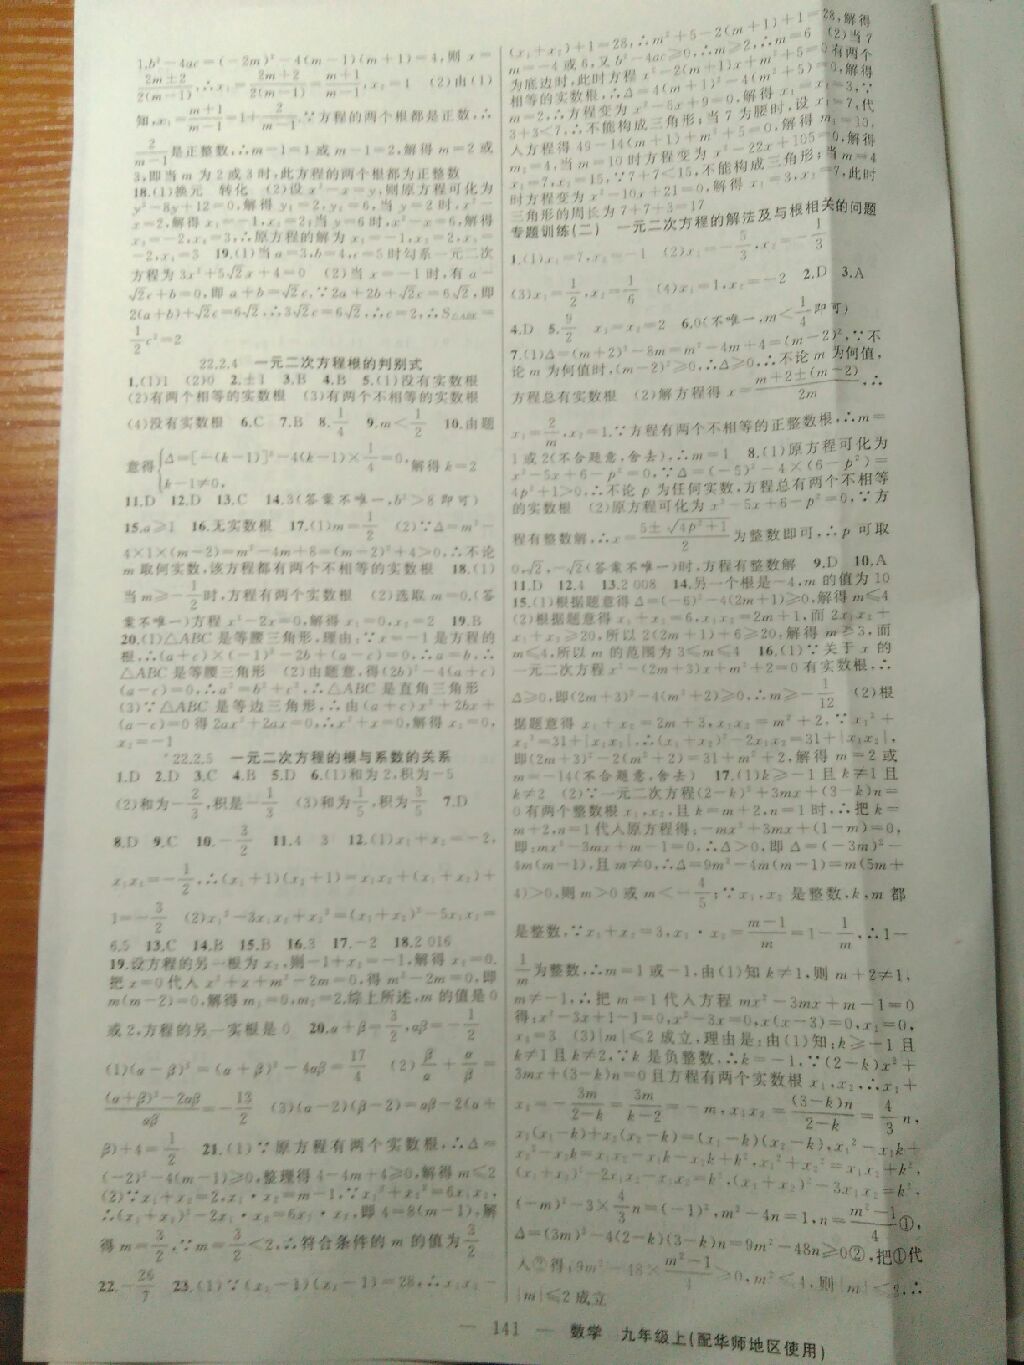 1.b²-4ac=(-2m)²-4(m-1)(m+1)=4,则 x=
(2m±2)/(2(m-1)),∴x₁=(2m+2)/(2(m-1))=(m+1)/(m-1),x₂=1 (2)由(1)
知,x₁=(m+1)/(m-1)=1+2/(m-1),∵方程的两个根都是正数,∴
2/(m-1)是正整数,∴m-1=1或m-1=2,解得m=2或
3,即当m为2或3时,此方程的两个根都为正整数
18.(1)换元 转化 (2)设x²-x=y,则原方程可化为
y²-8y+12=0,解得y₁=2,y₂=6,当y=2时,x²-
x=2,解得x₁=-1,x₂=2;当y=6时,x²-x=6,解得
x₃=-2,x₄=3,∴原方程的解为x₁=-1,x₂=2,x₃=
-2,x₄=3 19.(1)当a=3,b=4,c=5时勾系一元二次
方程为3x²+5√2x+4=0 (2)当x=-1时,有a-
√2c+b=0,即a+b=√2c,∵2a+2b+√2c=6√2,即
2(a+b)+√2c=6√2,∴3√2c=6√2,∴c=2,∴S△ABE=
1/2c²=2
22.2.4 一元二次方程根的判别式
1.(1)1 (2)0 2.±1 3.B 4.B 5.(1)没有实数根
(2)有两个相等的实数根 (3)有两个不相等的实数根
(4)没有实数根 6.C 7.B 8.1/4 9.m<1/2 10.由题
意得{Δ=[-(k-1)]²-4(k-1)×1/4=0, k-1≠0, 解得k=2
11.D 12.D 13.C 14.3(答案不唯一,b²>8即可)
15.a≥1 16.无实数根 17.(1)m=1/2 (2)∵Δ=m²-
4×1×(m-2)=m²-4m+8=(m-2)²+4>0,∴不论
m取何实数,该方程都有两个不相等的实数根 18.(1)
当m≥-1/2时,方程有两个实数根 (2)选取m=0,(答
案不唯一)方程x²-2x=0,解得x₁=0,x₂=2 19.B
20.(1)△ABC是等腰三角形,理由:∵x=-1是方程的
根,∴(a+c)×(-1)²-2b+(a-c)=0,∴a=b,∴
△ABC是等腰三角形 (2)由题意,得(2b)²-4(a+c)
(a-c)=0,∴a²=b²+c²,∴△ABC是直角三角形
(3)∵△ABC是等边三角形,∴由(a+c)x²+2bx+
(a-c)=0得2ax²+2ax=0,∴x²+x=0,解得x₁=0,
x₂=-1
22.2.5 一元二次方程的根与系数的关系
1.D 2.D 3.C 4.B 5.D 6.(1)和为2,积为-5
(2)和为-2/3,积是-1/3 (3)和为1/5,积为3/5 7.D
8.D 9.C 10.-3/2 11.4 3 12.(1)x₁+x₂=-2,
x₁x₂=-1/2,∴(x₁+1)(x₂+1)=x₁x₂+(x₁+x₂)+
1=-3/2 (2)x₁²-3x₁x₂+x₂²=(x₁+x₂)²-5x₁x₂=
6.5 13.C 14.B 15.B 16.3 17.-2 18.2 016
19.设方程的另一根为x₂,则-1+x₂=-1,解得x₂=0.
把x=0代入x²+x+m²-2m=0,得m²-2m=0,即
m(m-2)=0,解得m₁=0,m₂=2,综上所述,m的值是0
或2,方程的另一实根是0 20.α+β=3/2,αβ=-1/2
(1)(α-β)²=(α+β)²-4αβ=17/4 (2)β/α+α/β=
((α+β)²-2αβ)/αβ=-13/2 (3)(α-2)(β-2)=αβ-2(α+
β)+4=1/2 21.(1)∵原方程有两个实数根,∴Δ=
(-2)²-4(m-1)≥0,整理得4-4m+4≥0,解得m≤2
(2)∵x₁+x₂=2,x₁·x₂=m-1,∵x₁²+x₂²=6x₁x₂,
∴(x₁+x₂)²-2x₁·x₂=6x₁·x₂,即4=8(m-1),解
得m=3/2,∵m=3/2<2,∴符合条件的m的值为3/2
22.-26/7 23.(1)∵(x₁-1)(x₂-1)=28,∴x₁x₂-
(x₁+x₂)+1=28,∴m²+5-2(m+1)+1=28,解得
m=-4或6,又b²-4ac≥0,∴m≥2,∴m=6 (2)当7
为底边时,此时方程x²-2(m+1)x+m²+5=0有两个
相等的实数根,∴Δ=4(m+1)²-4(m²+5)=0,解得
m=2,∴方程变为x²-6x+9=0,解得x₁=x₂=3,∵
3+3<7,∴不能构成三角形;当7为腰时,设x₁=7,代
入方程得49-14(m+1)+m²+5=0,解得m₁=10,
m₂=4,当m=10时方程变为x²-22x+105=0,解得
x₁=7,x₂=15,∵7+7<15,不能构成三角形;当m=4
时方程变为x²-10x+21=0,解得x₁=3,x₂=7,此时
三角形的周长为7+7+3=17
专题训练(二) 一元二次方程的解法及与根相关的问题
1.(1)x₁=7,x₂=-1 (2)x₁=-5/3,x₂=-1/3
(3)x₁=1/2,x₂=1/6 (4)x₁=1,x₂=-2 2.D 3.A
4.D 5.9/2 x₁=x₂=2 6.0(不唯一,m<1/4即可)
7.(1)Δ=(m+2)²-8m=m²-4m+4=(m-2)²,∵不
论m为何值时,(m-2)²≥0,∴Δ≥0,∴不论m为何值,
方程总有实数根 (2)解方程得x=(m+2±(m-2))/2m,∴
x₁=2/m,x₂=1,∵方程有两个不相等的正整数根,∴m=
1或2(不合题意,舍去),∴m=1 8.(1)原方程可化为
x²-5x+6-p²=0,∵Δ=(-5)²-4×(6-p²)=
4p²+1>0,∴不论p为任何实数,方程总有两个不相等
的实数根 (2)原方程可化为x²-5x+6-p²=0,∵方
程有整数解,∴x=(5±√(4p²+1))/2为整数即可,∴p可取
0,√2,-√2(答案不唯一)时,方程有整数解 9.D 10.A
11.D 12.4 13.2 008 14.另一个根是-4,m的值为10
15.(1)根据题意得Δ=(-6)²-4(2m+1)≥0,解得m≤4
(2)根据题意得x₁+x₂=6,x₁x₂=2m+1,而2x₁x₂+
x₁+x₂≥20,所以2(2m+1)+6≥20,解得m≥3,而
m≤4,所以m的范围为3≤m≤4 16.(1)∵关于x的
一元二次方程x²-(2m+3)x+m²+2=0有实数根,∴
Δ≥0,即(2m+3)²-4(m²+2)≥0,∴m≥-1/12 (2)根
据题意得x₁+x₂=2m+3,x₁x₂=m²+2,∵x₁²+
x₂²=31+|x₁x₂|,∴(x₁+x₂)²-2x₁x₂=31+|x₁x₂|,
即(2m+3)²-2(m²+2)=31+m²+2,解得m=2或
m=-14(不合题意,舍去) 17.(1)k≥-1且k≠1且
k≠2 (2)∵一元二次方程(2-k)x²+3mx+(3-k)n=
0有两个整数根x₁,x₂,且k=m+2,n=1时,∴把k=
m+2,n=1代入原方程得:-mx²+3mx+(1-m)=0,
即:mx²-3mx+m-1=0,∴Δ>0,即Δ=(-3m)²-
4m(m-1),且m≠0,∴Δ=9m²-4m(m-1)=m(5m+
4)>0,则m>0或m<-4/5;∵x₁,x₂是整数,k,m都
是整数,∵x₁+x₂=3,x₁·x₂=(m-1)/m=1-1/m,∴1-
1/m为整数,∴m=1或-1,由(1)知k≠1,则m+2≠1,
m≠-1,∴把m=1代入方程mx²-3mx+m-1=0
得:x²-3x+1-1=0,x²-3x=0,x(x-3)=0,x₁=0,
x₂=3 (3)|m|≤2成立,理由是:由(1)知:k≥-1且
k≠1且k≠2,∵k是负整数,∴k=-1,∵(2-k)x²+
3mx+(3-k)n=0且方程有两个实数根x₁,x₂,∴x₁+
x₂=-3m/(2-k)=3m/(k-2)=-m,x₁x₂=(3-k)n/(2-k)=4/3n,
x₁(x₁-k)+x₂(x₂-k)=(x₁-k)(x₂-k),x₁²-x₁k+
x₂²-x₂k=x₁x₂-x₁k-x₂k+k²,x₁²+x₂²=x₁x₂+k²,
(x₁+x₂)²-2x₁x₂-x₁x₂=k²,(x₁+x₂)²-3x₁x₂=k²,
(-m)²-3×4/3n=(-1)²,m²-4n=1,n=(m²-1)/4①,
Δ=(3m)²-4(2-k)(3-k)n=9m²-48n≥0②,把①代
入②得:9m²-48×(m²-1)/4≥0,m²≤4,则|m|≤2,∴
|m|≤2成立
— 141 — 数学 九年级上(配华师地区使用)